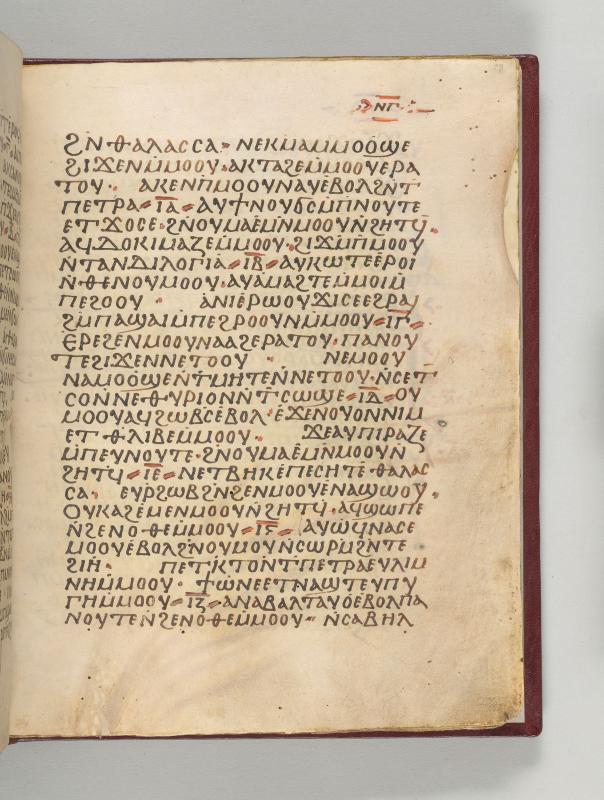 ⲛⲅ
ϩⲛⲑⲁⲗⲁⲥⲥⲁ· ⲛⲉⲕⲙⲁⲙⲙⲟⲟϣⲉ
ϩⲓϫⲉⲛⲙⲙⲟⲟⲩ·ⲁⲕⲧⲁϩⲉⲙⲙⲟⲟⲩⲉⲣⲁ
ⲧⲟⲩ· ⲁⲕⲉⲛⲡⲙⲟⲟⲩⲛⲁⲩⲉⲃⲟⲗϩⲛⲧ
ⲡⲉⲧⲣⲁ·ⲓ̅ⲁ̅·ⲁⲩϯⲛⲟⲩϭⲥⲙⲡⲛⲟⲩⲧⲉ
ⲉⲧϫⲟⲥⲉ·ϩⲛⲟⲩⲙⲁⲉⲙⲛⲙⲟⲟⲩⲛϩⲏⲧϥ·
ⲁϥⲇⲟⲕⲓⲙⲁⲍⲉⲙⲙⲟⲟⲩ·ϩⲓϫⲙⲡⲙⲟⲟⲩ
ⲛⲧⲁⲛⲇⲓⲗⲟⲅⲓⲁ·ⲓ̅ⲃ̅·ⲁⲩⲕⲱⲧⲉⲉⲣⲟⲓ
ⲛⲑⲉⲛⲟⲩⲙⲟⲟⲩ·ⲁⲩⲁⲙⲁϩⲧⲉⲙⲙⲟⲓⲙ
ⲡⲉϩⲟⲟⲩ· ⲁⲛⲓⲉⲣⲱⲟⲩϫⲓⲥⲉⲉϩⲣⲁⲓ
ϩⲙⲡⲁϣⲁⲓⲙⲡⲉϩⲣⲟⲟⲩⲛⲙⲙⲟⲟⲩ·ⲓ̅ⲅ̅·
ⲉⲣⲉϩⲉⲛⲙⲟⲟⲩⲛⲁⲁϩⲉⲣⲁⲧⲟⲩ·ⲡⲁⲛⲟⲩ
ⲧⲉϩⲓϫⲉⲛⲛⲉⲧⲟⲟⲩ· ⲛⲉⲙⲟⲟⲩ
ⲛⲁⲙⲟⲟϣⲉⲛⲧⲙⲏⲧⲉⲛⲛⲉⲧⲟⲟⲩ·ⲛⲥⲉⲧ
ⲥⲟⲛⲛⲉⲑⲩⲣⲓⲟⲛⲛⲧⲥⲱϣⲉ·ⲓ̅ⲇ̅·ⲟⲩ
ⲙⲟⲟⲩⲁϥϩⲱⲃⲥⲉⲃⲟⲗ·ⲉϫⲉⲛⲟⲩⲟⲛⲛⲓⲙ
ⲉⲧⲑⲗⲓⲃⲉⲙⲙⲟⲟⲩ· ϫⲉⲁⲩⲡⲓⲣⲁⲍⲉ
ⲙⲡⲉⲩⲛⲟⲩⲧⲉ·ϩⲛⲟⲩⲙⲁⲉⲙⲛⲙⲟⲟⲩⲛ
ϩⲏⲧϥ·ⲓ̅ⲉ̅·ⲛⲉⲧⲃⲏⲕⲉⲡⲉⲥⲏⲧⲉⲑⲁⲗⲁⲥ
ⲥⲁ· ⲉⲩⲣϩⲱⲃϩⲛϩⲉⲛⲙⲟⲟⲩⲉⲛⲁϣⲱⲟⲩ·
ⲟⲩⲕⲁϩⲉⲙⲉⲛⲙⲟⲟⲩⲛϩⲏⲧϥ·ⲁϥϣⲱⲡⲉ
ⲛϩⲉⲛⲟⲑⲉⲙⲙⲟⲟⲩ·ⲓ̅ⲋ̅·ⲁⲩⲱϥⲛⲁⲥⲉ
ⲙⲟⲟⲩⲉⲃⲟⲗϩⲛⲟⲩⲙⲟⲩⲛⲥⲱⲣⲙϩⲛⲧⲉ
ϩⲓⲏ· ⲡⲉⲧⲕⲧⲟⲛⲧⲡⲉⲧⲣⲁⲉⲩⲗⲓⲙ
ⲛⲏⲙⲙⲟⲟⲩ· ϯⲱⲛⲉⲉⲧⲛⲁϣⲧⲉⲩⲡⲩ
ⲅⲏⲙⲙⲟⲟⲩ·ⲓ̅ⲍ̅·ⲁⲛⲁⲃⲁⲗⲧⲁⲩⲟⲉⲃⲟⲗⲡⲁ
ⲛⲟⲩⲧⲉⲛϩⲉⲛⲟⲑⲉⲙⲙⲟⲟⲩ·ⲛⲥⲁⲃⲏⲗ